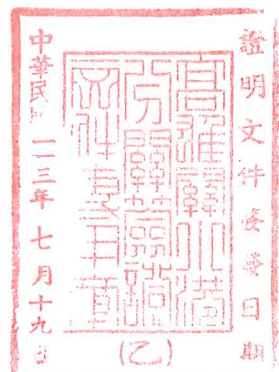 證明文件妥發日期
高雄關小港
分關簽證
文件專用章
中華民國一一三年七月十九日
(乙)